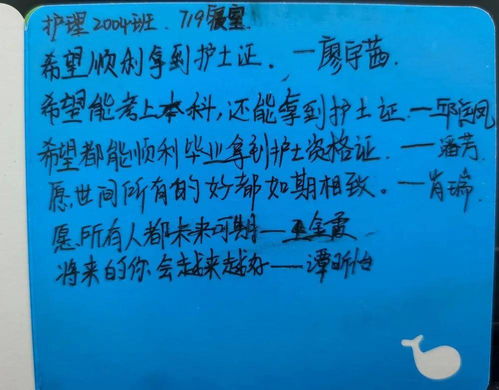 护理2004班 719寝室
希望顺利拿到护士证。—廖宇茜
希望能考上本科,还能拿到护士证—邱凤
希望都能顺利毕业拿到护士资格证—潘芳
愿世间所有的好都如期相致。—肖瑞
愿所有人都未来可期—王金霞
将来的你会越来越好——谭昕怡